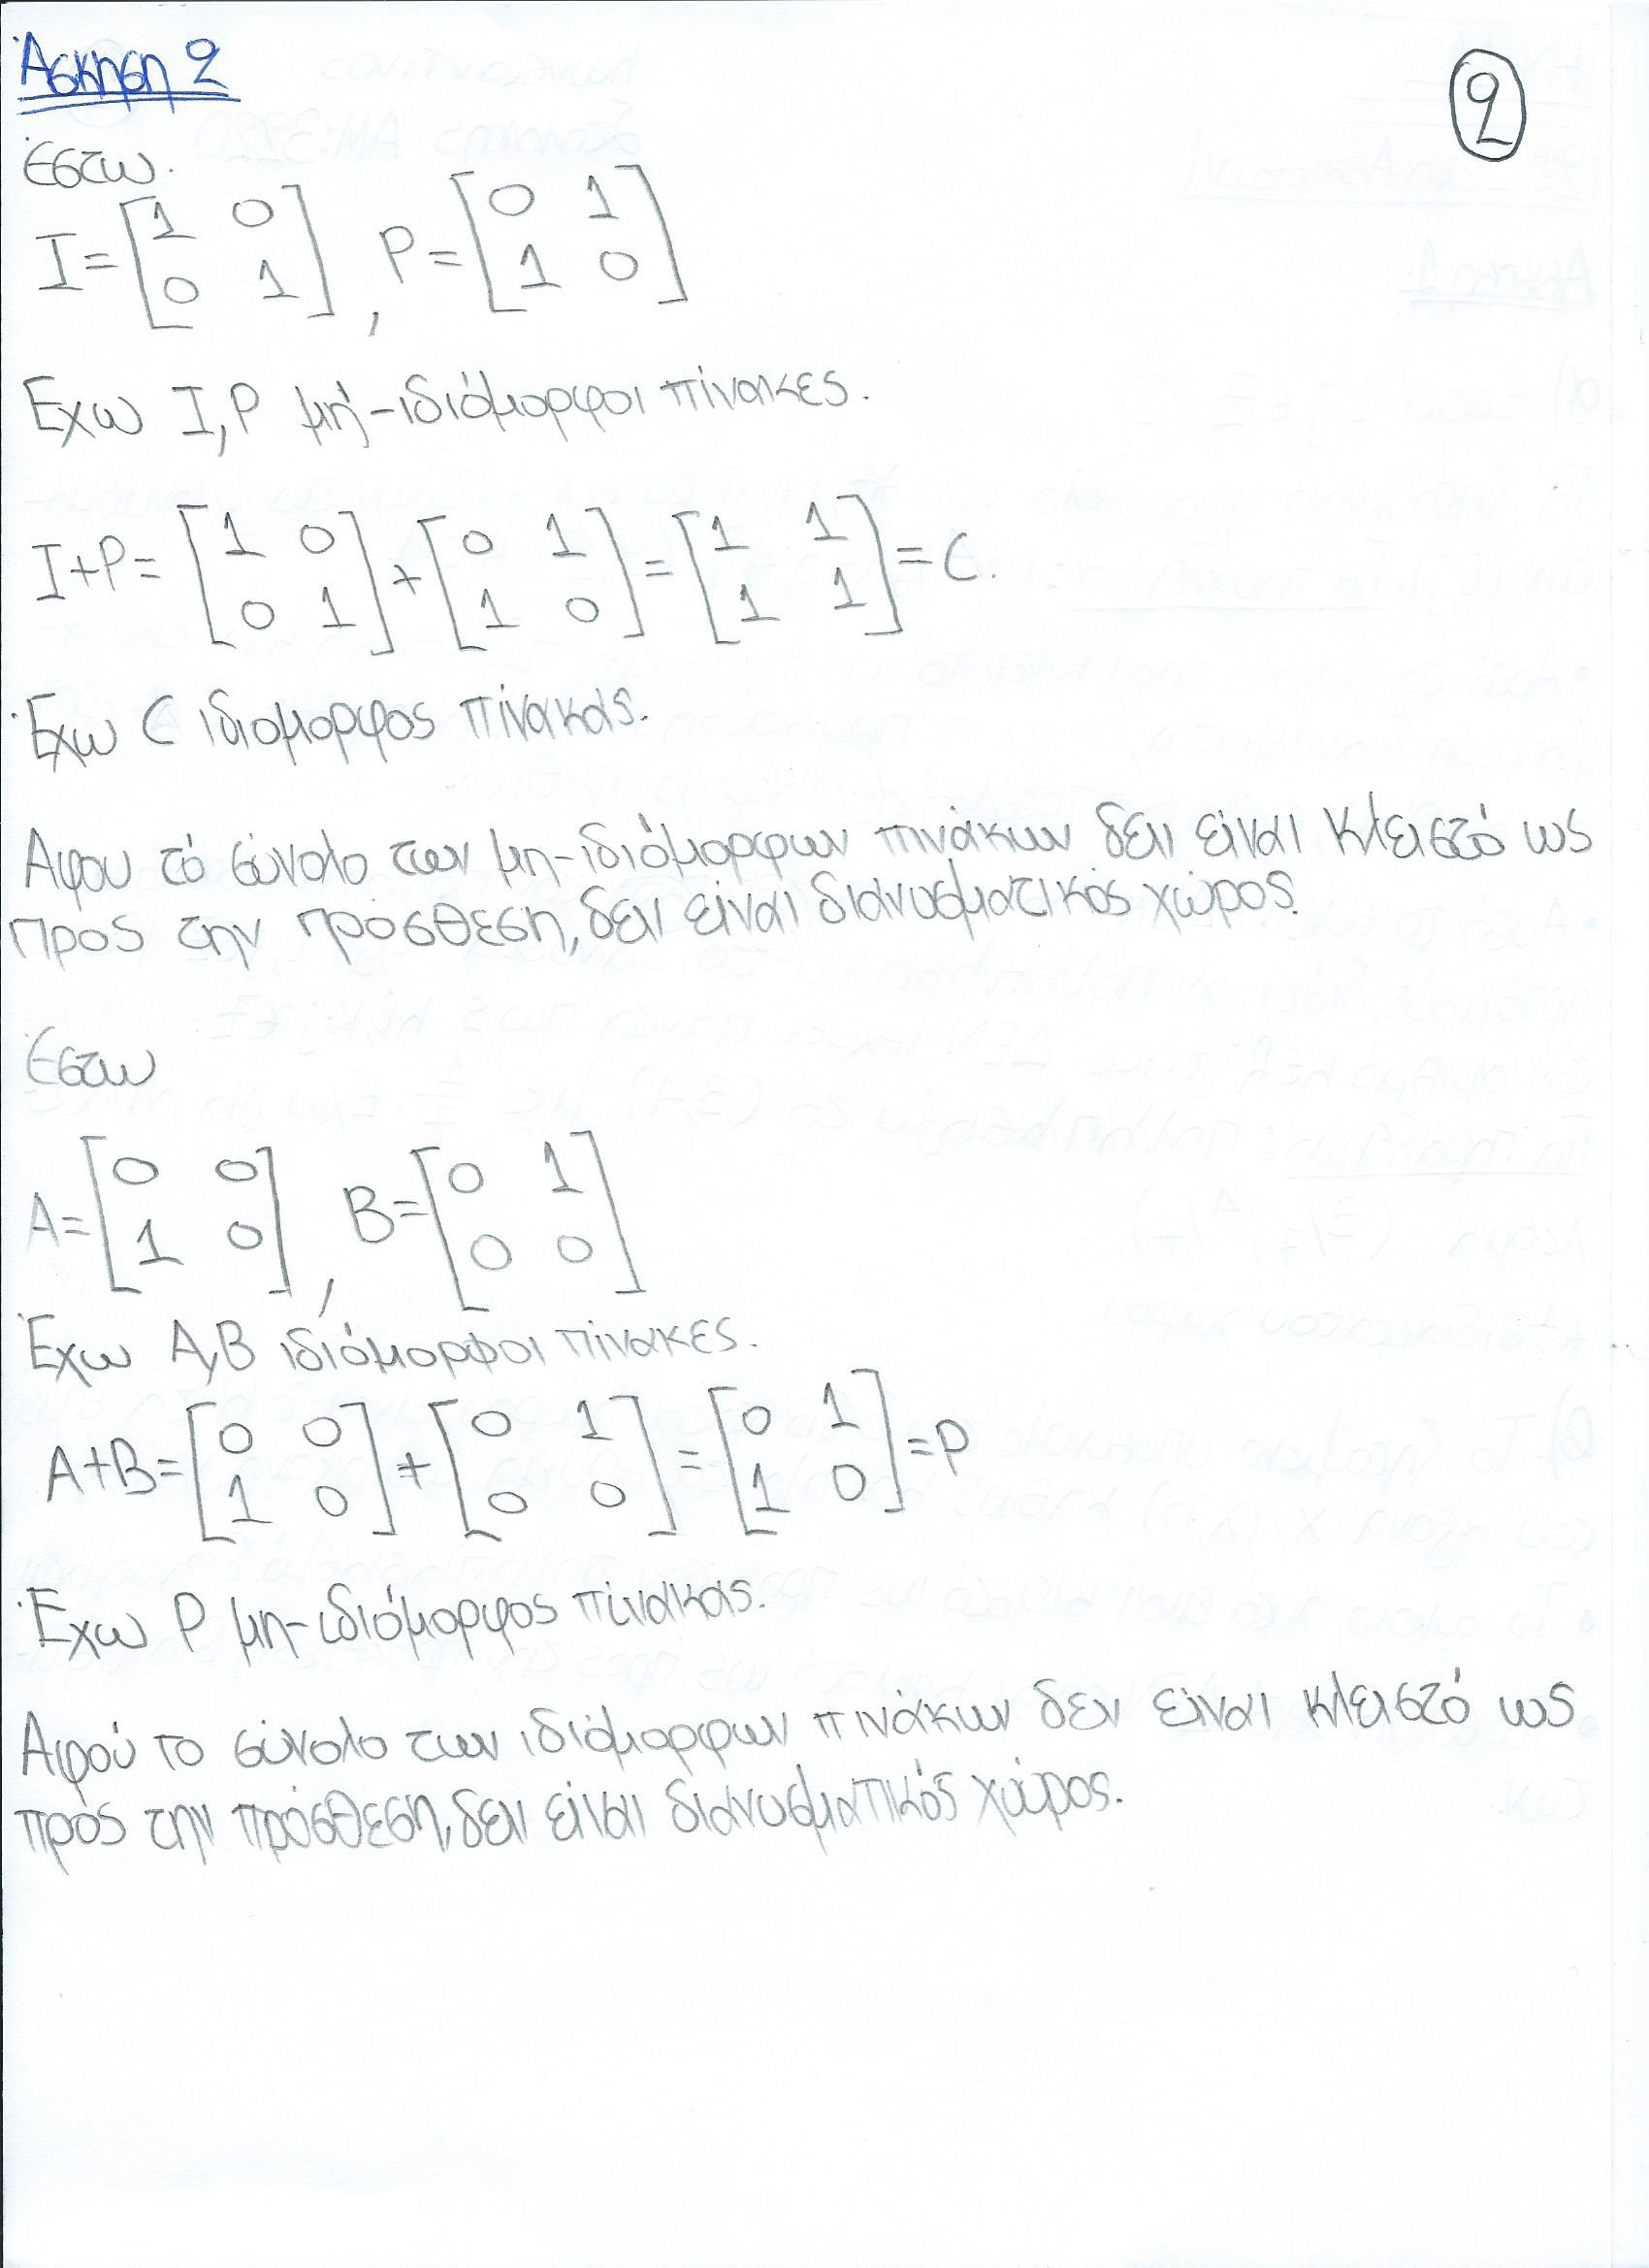 Άσκηση 2
2
Έστω.
I = [1 0; 0 1], P = [0 1; 1 0]
Εχω I, P μή-ιδιόμορφοι πίνακες.
I+P = [1 0; 0 1] + [0 1; 1 0] = [1 1; 1 1] = C.
Έχω C ιδιομορφος πίνακας.
Αφου τό σύνολο των μη-ιδιόμορφων πινάκων δεν είναι κλειστό ως
προς την πρόσθεση, δεν είναι διανυσματικός χώρος.
Έστω
A = [0 0; 1 0], B = [0 1; 0 0]
Έχω A, B ιδιόμορφοι πίνακες.
A+B = [0 0; 1 0] + [0 1; 0 0] = [0 1; 1 0] = P
Έχω P μη-ιδιόμορφος πίνακας.
Αφού το σύνολο των ιδιόμορφων πινάκων δεν είναι κλειστό ως
προς την πρόσθεση, δεν είναι διανυσματικός χώρος.